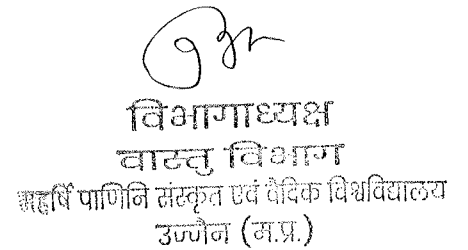 विभागाध्यक्ष
वास्तु विभाग
महर्षि पाणिनि संस्कृत एवं वैदिक विश्वविद्यालय
उज्जैन (म.प्र.)